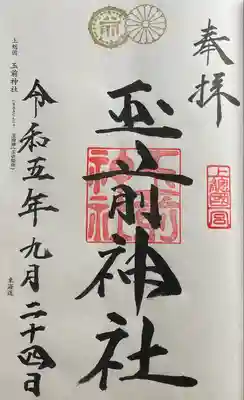 奉拝
上総國一宮
玉前神社
玉前神社
令和五年九月二十四日
上総国 玉前神社
東海道